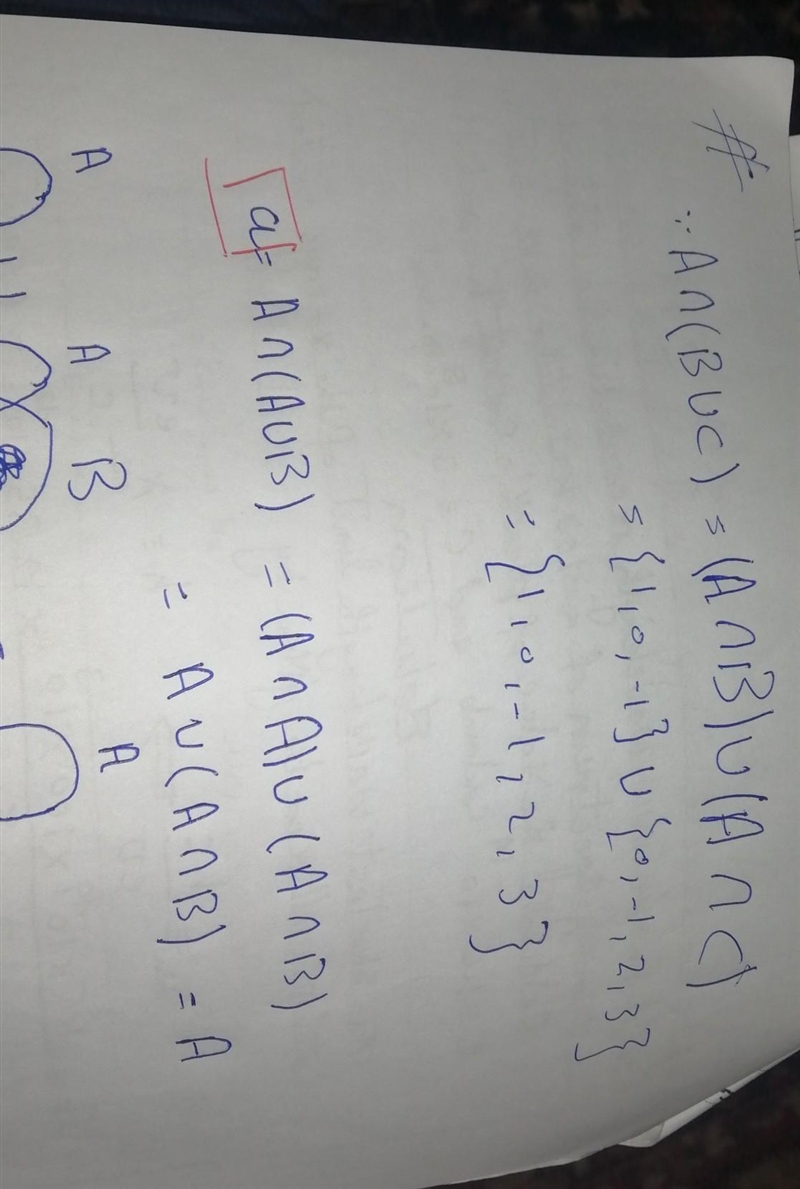 #
∵ A∩(B∪C) = (A∩B)∪(A∩C)
= {1,0,-1} ∪ {0,-1,2,3}
= {1,0,-1,2,3}
a= A∩(A∪B) = (A∩A)∪(A∩B)
= A∪(A∩B) = A
A A B A